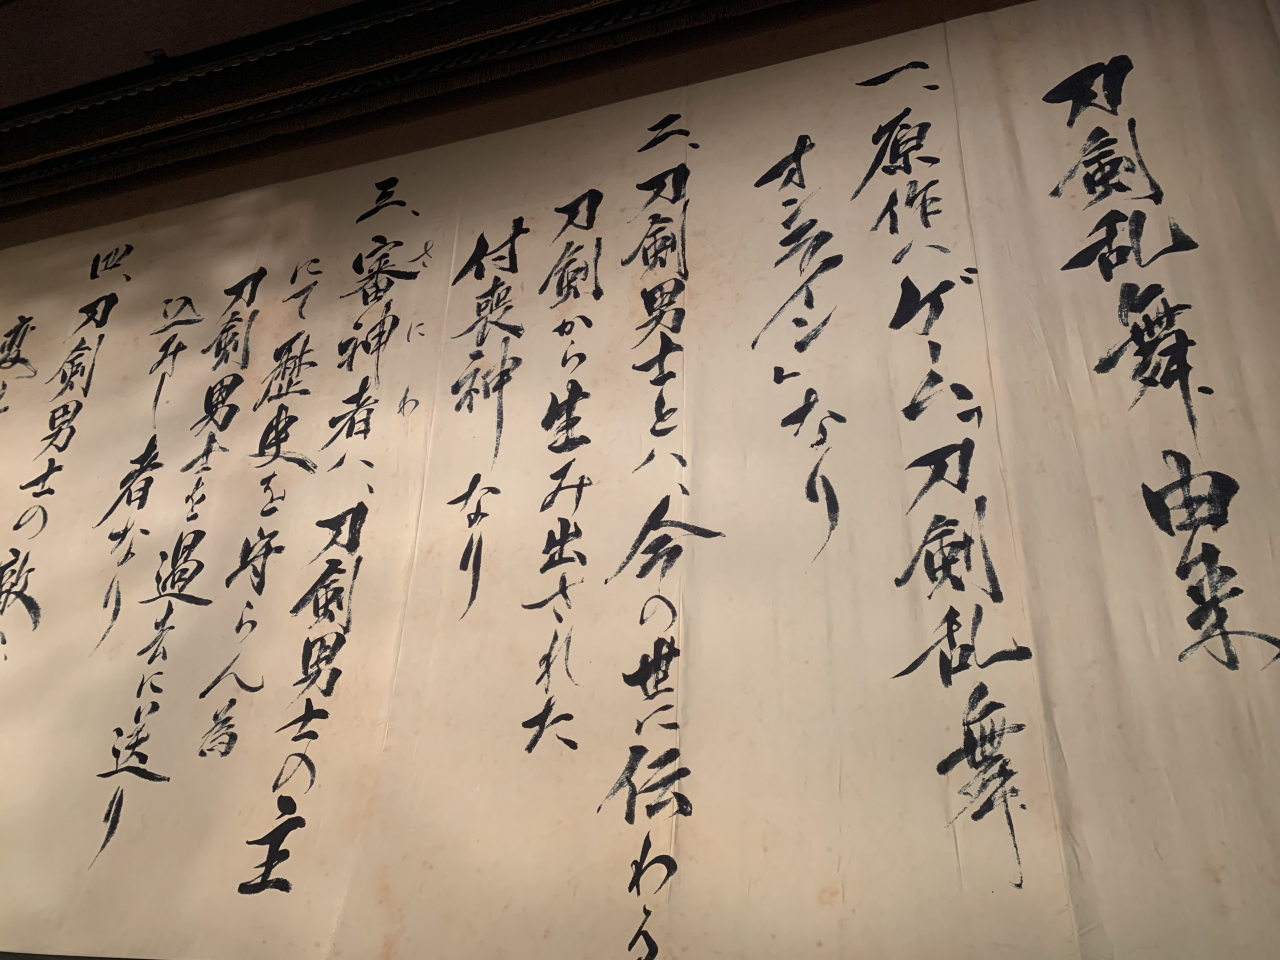 刀剣乱舞 由来
一、原作ハゲーム「刀剣乱舞
オンライン」なり
二、刀剣男士とハ、今の世に伝わる
刀剣から生み出された
付喪神なり
三、審神者ハ、刀剣男士の主
さにわ
にて歴史を守らん為
刀剣男士を過去に送り
込みし者なり
四、刀剣男士の敵
変